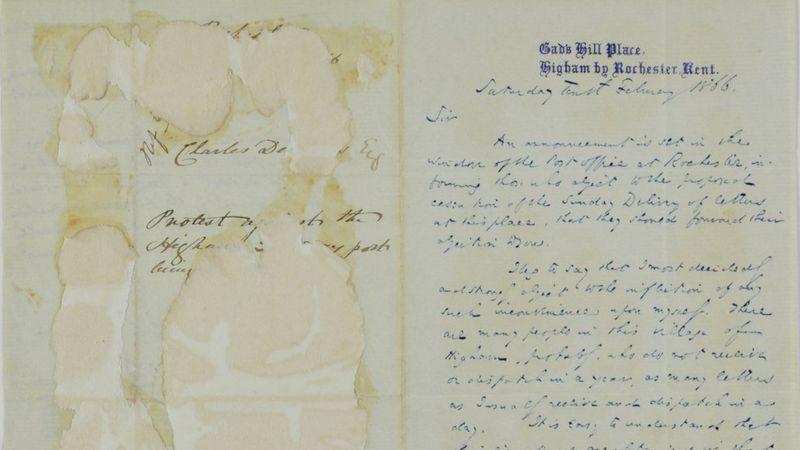 Charles D Esq
Protest the
High post
being
Gads Hill Place,
Higham by Rochester, Kent.
Saturday tenth February 1866.
Sir
An announcement is set in the
window of the Post Office at Rochester, in-
forming those who object to the proposed
cessation of the Sunday Delivery of letters
at this place, that they should forward their
objection to you.
I beg to say that I most decidedly
and strongly object to the infliction of any
such inconvenience upon myself. There
are many people in this village of
Higham, probably, who do not receive
or dispatch in a year, as many letters
as I usually receive and dispatch in a
day. It is easy to understand that